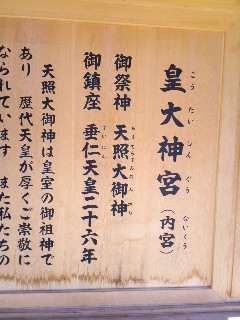 皇大神宮(内宮)
こうたいじんぐう ないくう
御祭神 天照大御神
御鎮座 垂仁天皇二十六年
すいにん
天照大御神は皇室の御祖神で
あり 歴代天皇が厚くご崇敬に
なられています また私たちの